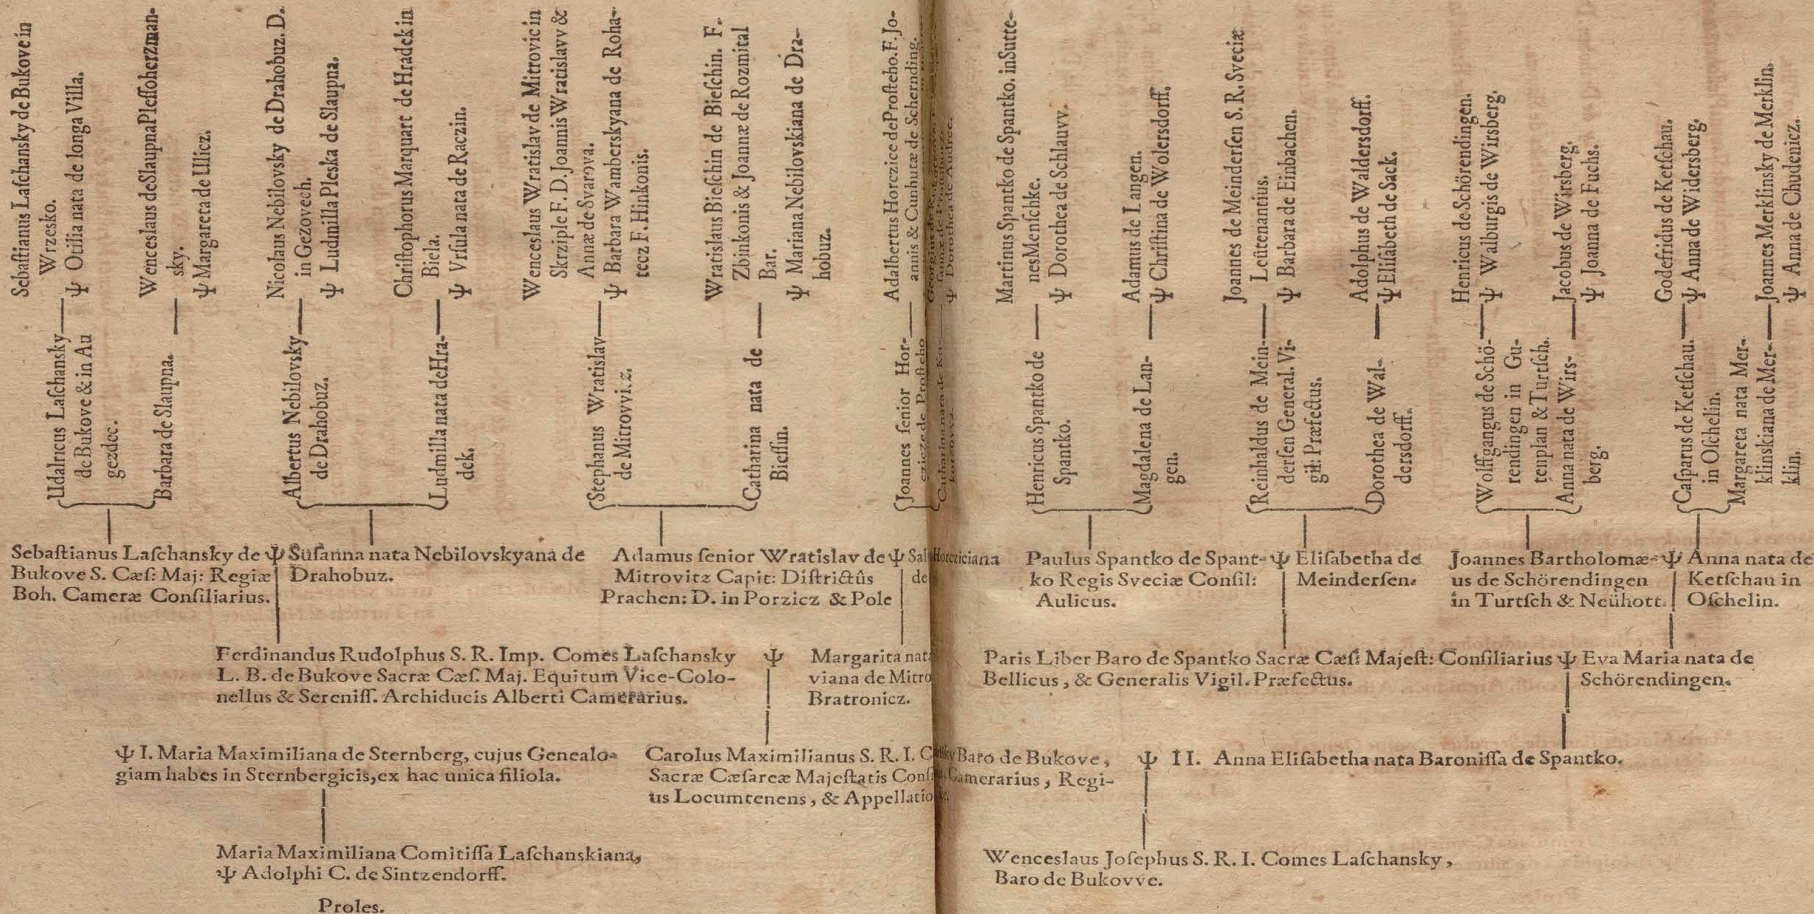 Sebastianus Laſchansky de Bukove in
Wrzesko.
Ψ Otilia nata de longa Villa.
Wenceslaus de Slaupna Pleſſoherzman-
sky.
Ψ Margareta de Ulicz.
Nicolaus Nebilovsky de Drahobuz. D.
in Gezovech.
Ψ Ludmilla Pleska de Slaupna.
Chriſtophorus Marquart de Hradek in
Biela.
Ψ Vrſula nata de Raczin.
Wenceslaus Wratislav de Mitrovic in
Skrziple F. D. Joannis Wratislavv &
Annæ de Svarova.
Ψ Barbara Wamberskyana de Roha-
tecz F. Hinkonis.
Wratislaus Bieſchin de Bieſchin. F.
Zbinkonis & Joannæ de Rozmital
Bar.
Ψ Mariana Nebilovskiana de Dra-
hobuz.
Adalbertus Horczice de Proſteho. F. Jo-
annis & Cunhutæ de Schernding.
Ψ Dorothea de Audrce.
Martinus Spantko de Spantko. in Sutte-
nes Menſchke.
Ψ Dorothea de Schlauvv.
Adamus de Langen.
Ψ Chriſtina de Wolersdorff.
Joannes de Meinderſen S. R. Sveciæ
Leütenantius.
Ψ Barbara de Einbachen.
Adolphus de Waldersdorff.
Ψ Eliſabeth de Sack.
Henricus de Schörendingen.
Ψ Walburgis de Wirsberg.
Jacobus de Wirsberg.
Ψ Joanna de Fuchs.
Godefridus de Ketſchau.
Ψ Anna de Widersberg.
Joannes Merklinsky de Merklin.
Ψ Anna de Chudenicz.
Udalricus Laſchansky
de Bukove & in Au
gezdec.
Barbara de Slaupna.
Albertus Nebilovsky
de Drahobuz.
Ludmilla nata de Hra-
dek.
Stephanus Wratislav
de Mitrovviz.
Catharina nata de
Bieſſin.
Joannes ſenior Hor-
czicze de Proſteho
Henricus Spantko de
Spantko.
Magdalena de Lan-
gen.
Reinhaldus de Mein-
derſen General. Vi-
gil: Præfectus.
Dorothea de Wal-
dersdorff.
Wolffgangus de Schö-
rendingen in Gu-
tenplan & Turtſch.
Anna nata de Wirs-
berg.
Caſparus de Ketſchau.
in Oſchelin.
Margareta nata Mer-
klinskiana de Mer-
klin.
Sebaſtianus Laſchansky de Ψ Suſanna nata Nebilovskyana de
Bukove S. Cæſ: Maj: Regiæ Drahobuz.
Boh. Cameræ Conſiliarius.
Adamus ſenior Wratislav de Ψ Sal Horcziciana
Mitrovitz Capit: Diſtrictûs de
Prachen: D. in Porzicz & Pole
Paulus Spantko de Spant- Ψ Eliſabetha de
ko Regis Sveciæ Conſil: Meinderſen.
Aulicus.
Joannes Bartholomæ- Ψ Anna nata de
us de Schörendingen Ketſchau in
in Turtſch & Neühott. Oſchelin.
Ferdinandus Rudolphus S. R. Imp. Comes Laſchansky Ψ Margarita nat
L. B. de Bukove Sacræ Cæſ. Maj. Equitum Vice-Colo- viana de Mitro
nellus & Sereniſſ. Archiducis Alberti Camerarius. Bratronicz.
Paris Liber Baro de Spantko Sacræ Cæſ: Majeſt: Conſiliarius Ψ Eva Maria nata de
Bellicus, & Generalis Vigil. Præfectus. Schörendingen.
Ψ I. Maria Maximiliana de Sternberg, cujus Genealo-
giam habes in Sternbergicis, ex hac unica filiola.
Carolus Maximilianus S. R. I. C Baro de Bukove,
Sacræ Cæſareæ Majeſtatis Conſi Camerarius, Regi-
us Locumtenens, & Appellatio
Ψ II. Anna Eliſabetha nata Baroniſſa de Spantko.
Maria Maximiliana Comitiſſa Laſchanskiana,
Ψ Adolphi C. de Sintzendorff.
Proles.
Wenceslaus Joſephus S. R. I. Comes Laſchansky,
Baro de Bukovve.